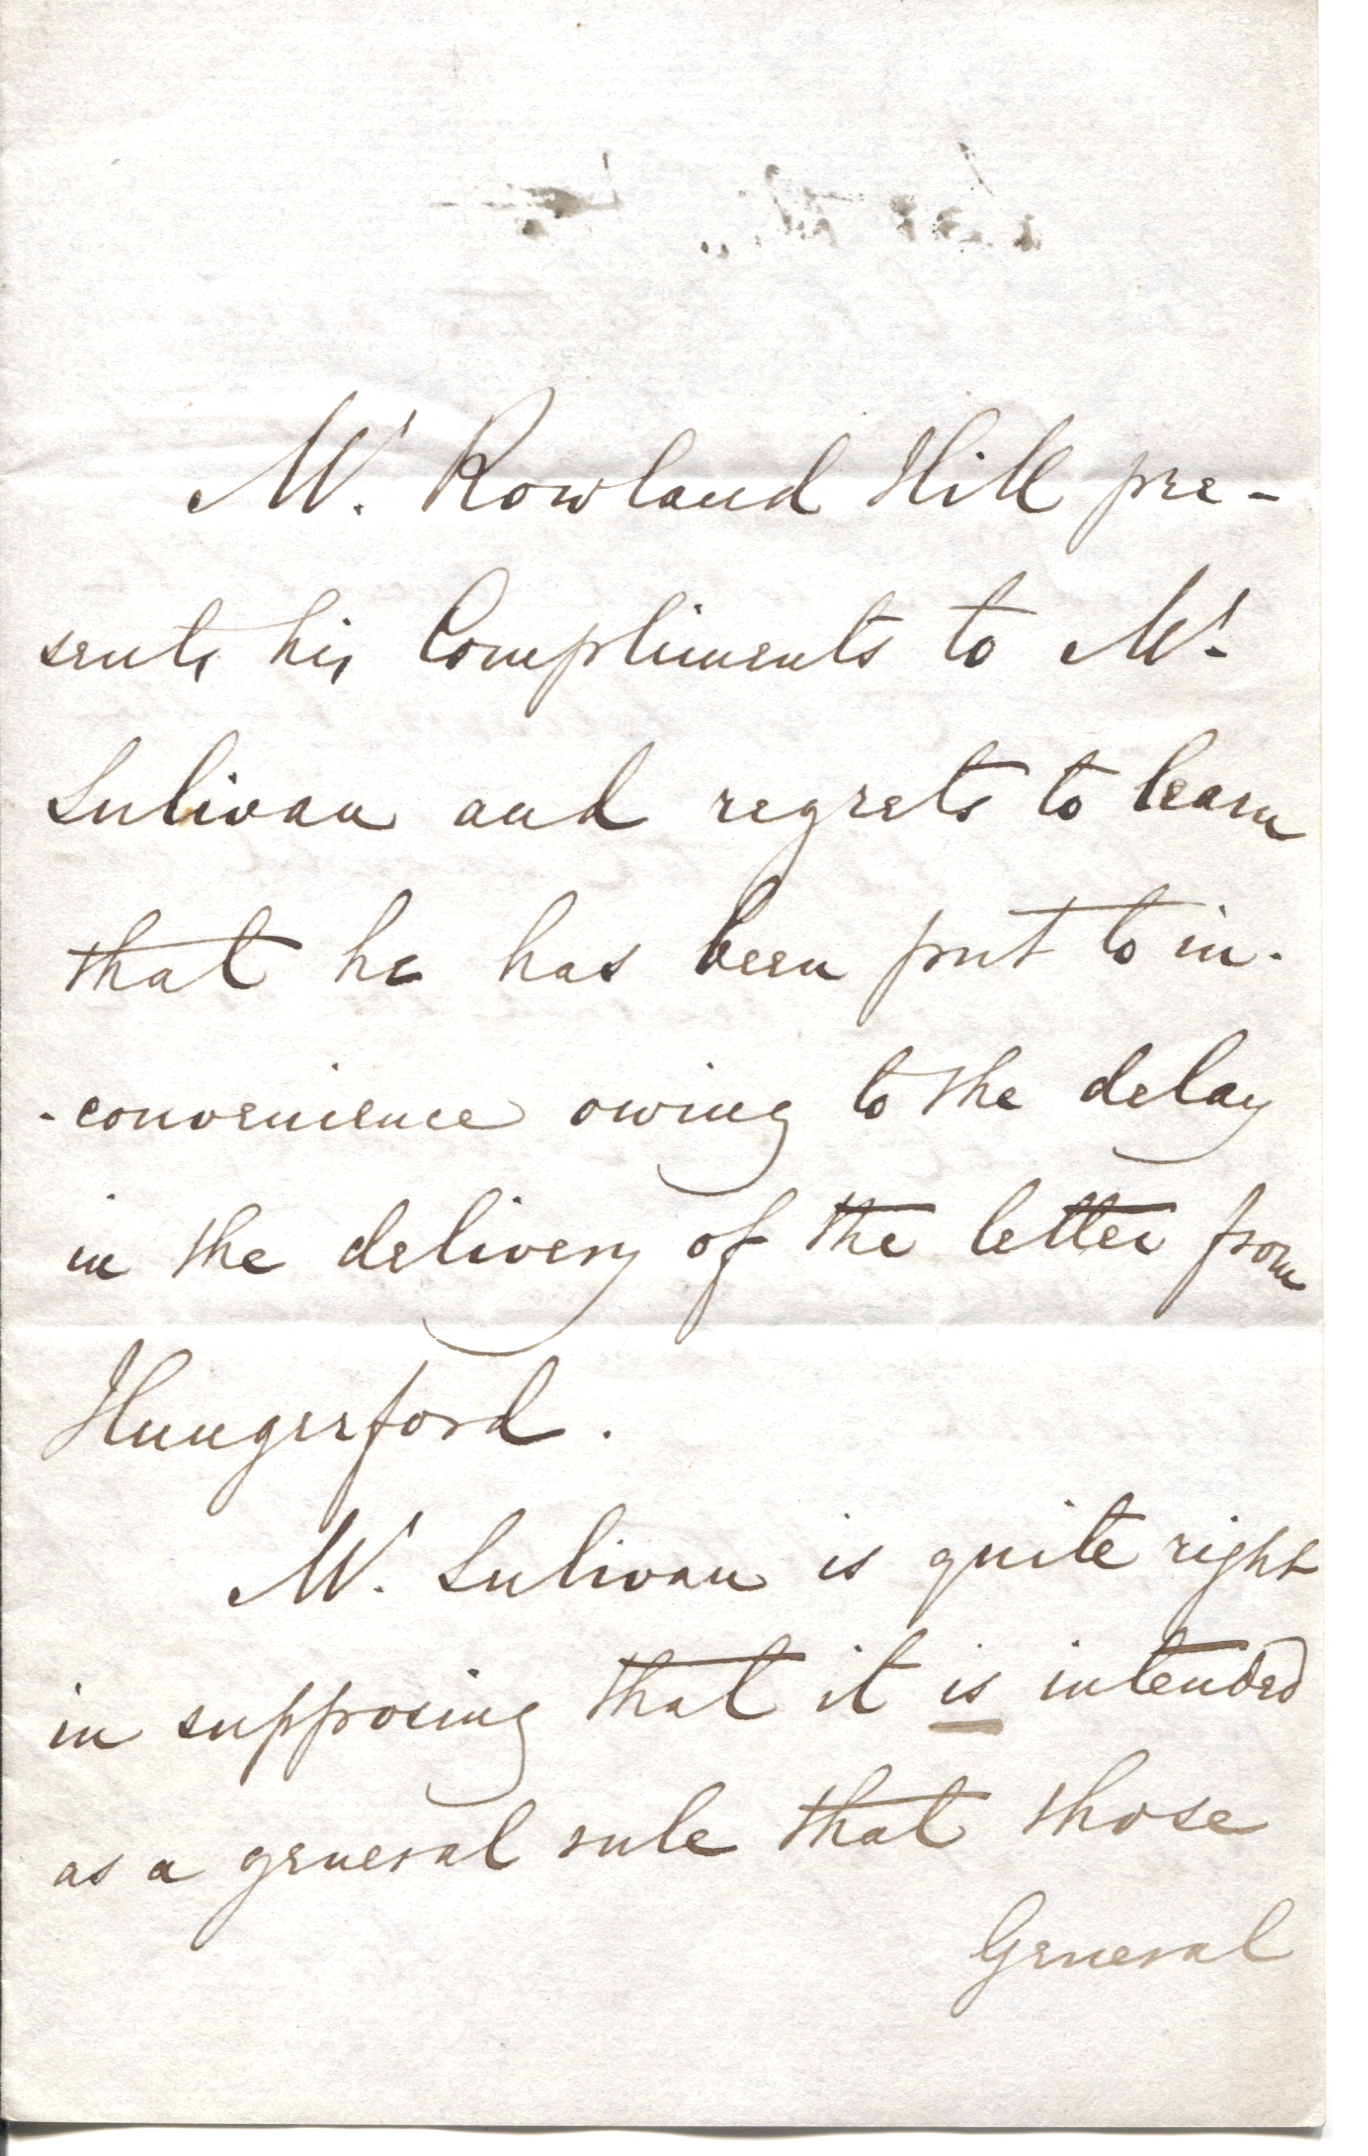 Mr. Rowland Hill pre-
sents his Compliments to Mr.
Sulivan and regrets to learn
that he has been put to in-
-convenience owing to the delay
in the delivery of the letter from
Hungerford.
Mr. Sulivan is quite right
in supposing that it is intended
as a general rule that those
General